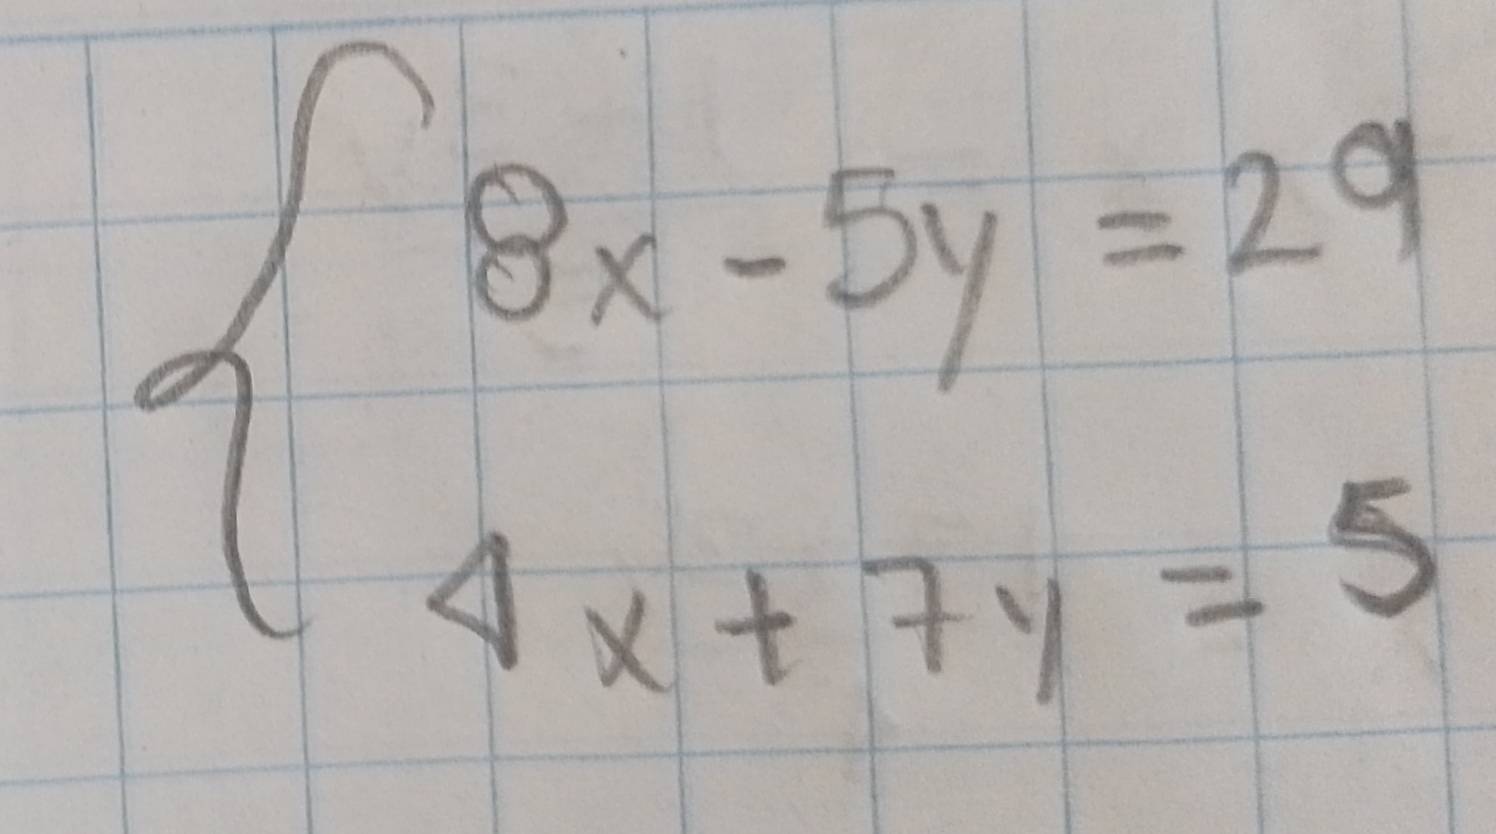 8x - 5y = 29
4x + 7y = 5